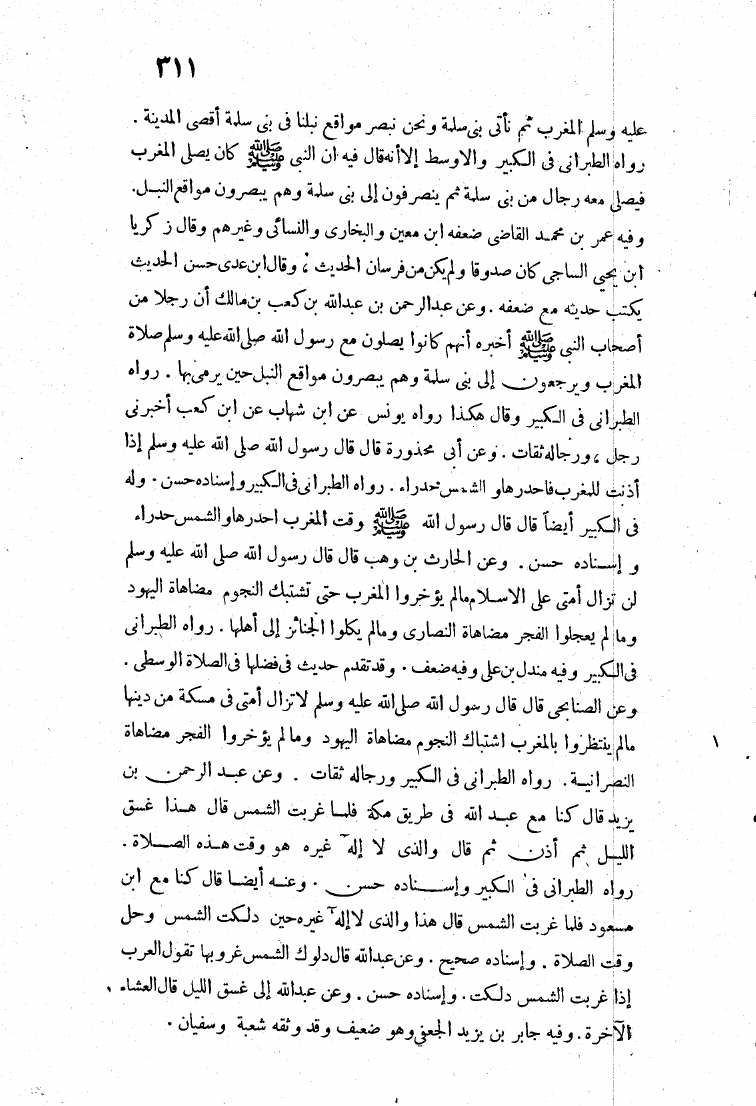 ٣١١
عليه وسلم المغرب ثم نأتى بنى سلمة ونحن نبصر مواقع نبلنا فى بنى سلمة أقصى المدينة .
رواه الطبرانى فى الكبير والاوسط إلا أنه قال فيه ان النبى ﷺ كان يصلى المغرب
فيصلى معه رجال من بنى سلمة ثم ينصرفون إلى بنى سلمة وهم يبصرون مواقع النبل .
وفيه عمر بن محمد القاضى ضعفه ابن معين والبخارى والنسائى وغيرهم وقال زكريا
ابن يحيى الساجى كان صدوقا ولم يكن من فرسان الحديث ، وقال ابن عدى حسن الحديث
يكتب حديثه مع ضعفه . وعن عبد الرحمن بن عبد الله بن كعب بن مالك أن رجلا من
أصحاب النبى ﷺ أخبره أنهم كانوا يصلون مع رسول الله صلى الله عليه وسلم صلاة
المغرب ويرجعون إلى بنى سلمة وهم يبصرون مواقع النبل حين يرمى بها . رواه
الطبرانى فى الكبير وقال هكذا رواه يونس عن ابن شهاب عن ابن كعب أخبرنى
رجل ، ورجاله ثقات . وعن أبى محذورة قال قال رسول الله صلى الله عليه وسلم إذا
أذنت للمغرب فاحدرها والشمس حدراء . رواه الطبرانى فى الكبير وإسناده حسن . وله
فى الكبير أيضاً قال قال رسول الله ﷺ وقت المغرب احدرها والشمس حدراء
وإسناده حسن . وعن الحارث بن وهب قال قال رسول الله صلى الله عليه وسلم
لن تزال أمتى على الاسلام مالم يؤخروا المغرب حتى تشتبك النجوم مضاهاة اليهود
ومالم يعجلوا الفجر مضاهاة النصارى ومالم يكلوا الجنائز إلى أهلها . رواه الطبرانى
فى الكبير وفيه مندل بن على وفيه ضعف . وقد تقدم حديث فى فضلها فى الصلاة الوسطى .
وعن الصنابحى قال قال رسول الله صلى الله عليه وسلم لا تزال أمتى فى مسكة من دينها
مالم ينتظروا بالمغرب اشتباك النجوم مضاهاة اليهود ومالم يؤخروا الفجر مضاهاة
النصرانية . رواه الطبرانى فى الكبير ورجاله ثقات . وعن عبد الرحمن بن
يزيد قال كنا مع عبد الله فى طريق مكة فلما غربت الشمس قال هذا غسق
الليل ثم أذن ثم قال والذى لا إله غيره هو وقت هذه الصلاة .
رواه الطبرانى فى الكبير وإسناده حسن . وعنه أيضا قال كنا مع ابن
مسعود فلما غربت الشمس قال هذا والذى لا إله غيره حين دلكت الشمس وحل
وقت الصلاة . وإسناده صحيح . وعن عبدالله قال دلوك الشمس غروبها تقول العرب
إذا غربت الشمس دلكت . وإسناده حسن . وعن عبدالله إلى غسق الليل قال العشاء
الآخرة . وفيه جابر بن يزيد الجعفى وهو ضعيف وقد وثقه شعبة وسفيان .